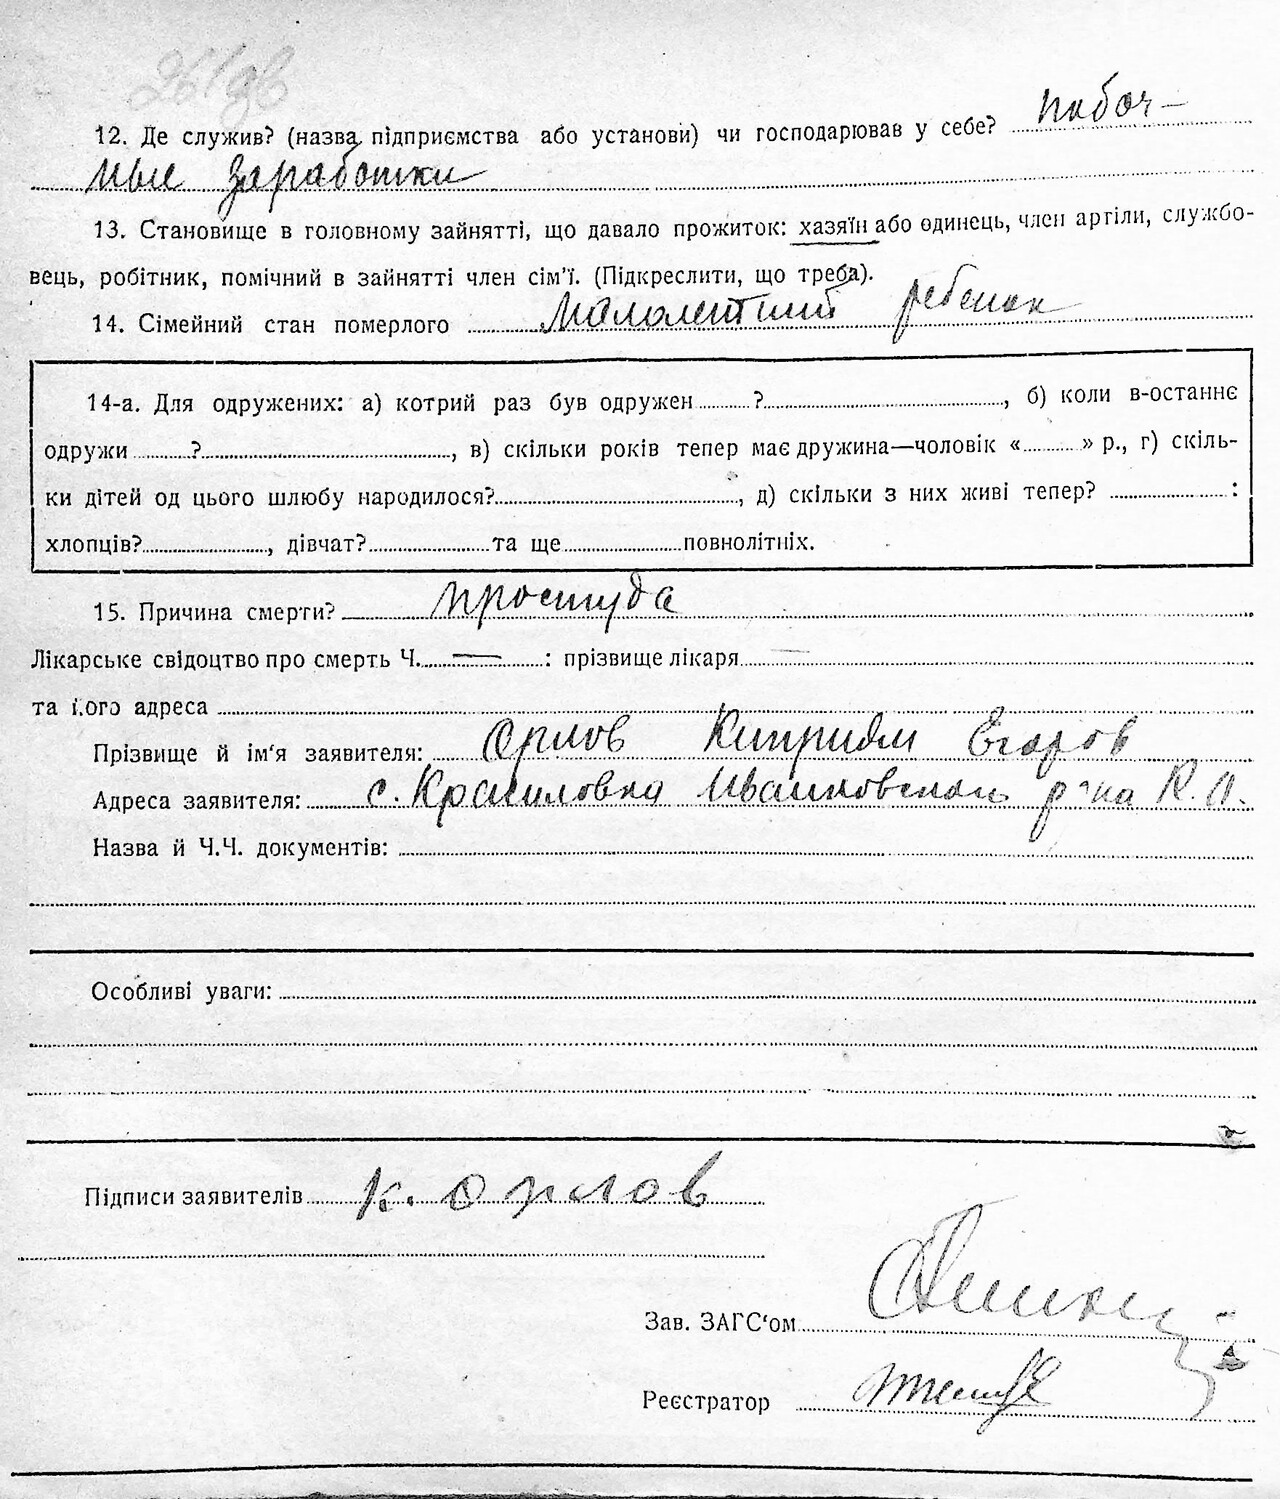 261зв
12. Де служив? (назва підприємства або установи) чи господарював у себе? побоч-
ные заработки
13. Становище в головному зайнятті, що давало прожиток: хазяїн або одинець, член артіли, службо-
вець, робітник, помічний в зайнятті член сім'ї. (Підкреслити, що треба).
14. Сімейний стан померлого малолетний ребенок
14-а. Для одружених: а) котрий раз був одружен ? , б) коли в-останнє
одружи ? , в) скільки років тепер має дружина—чоловік « » р., г) скіль-
ки дітей од цього шлюбу народилося? , д) скільки з них живі тепер? :
хлопців? , дівчат? та ще повнолітніх.
15. Причина смерти? простуда
Лікарське свідоцтво про смерть Ч. — : прізвище лікаря —
та його адреса
Прізвище й ім'я заявителя: Орлов Киприян Егоров
Адреса заявителя: с. Красиловка Иванковского р-на К. О.
Назва й Ч.Ч. документів:
Особливі уваги:
Підписи заявителів К. Орлов
Зав. ЗАГС'ом
Реєстратор